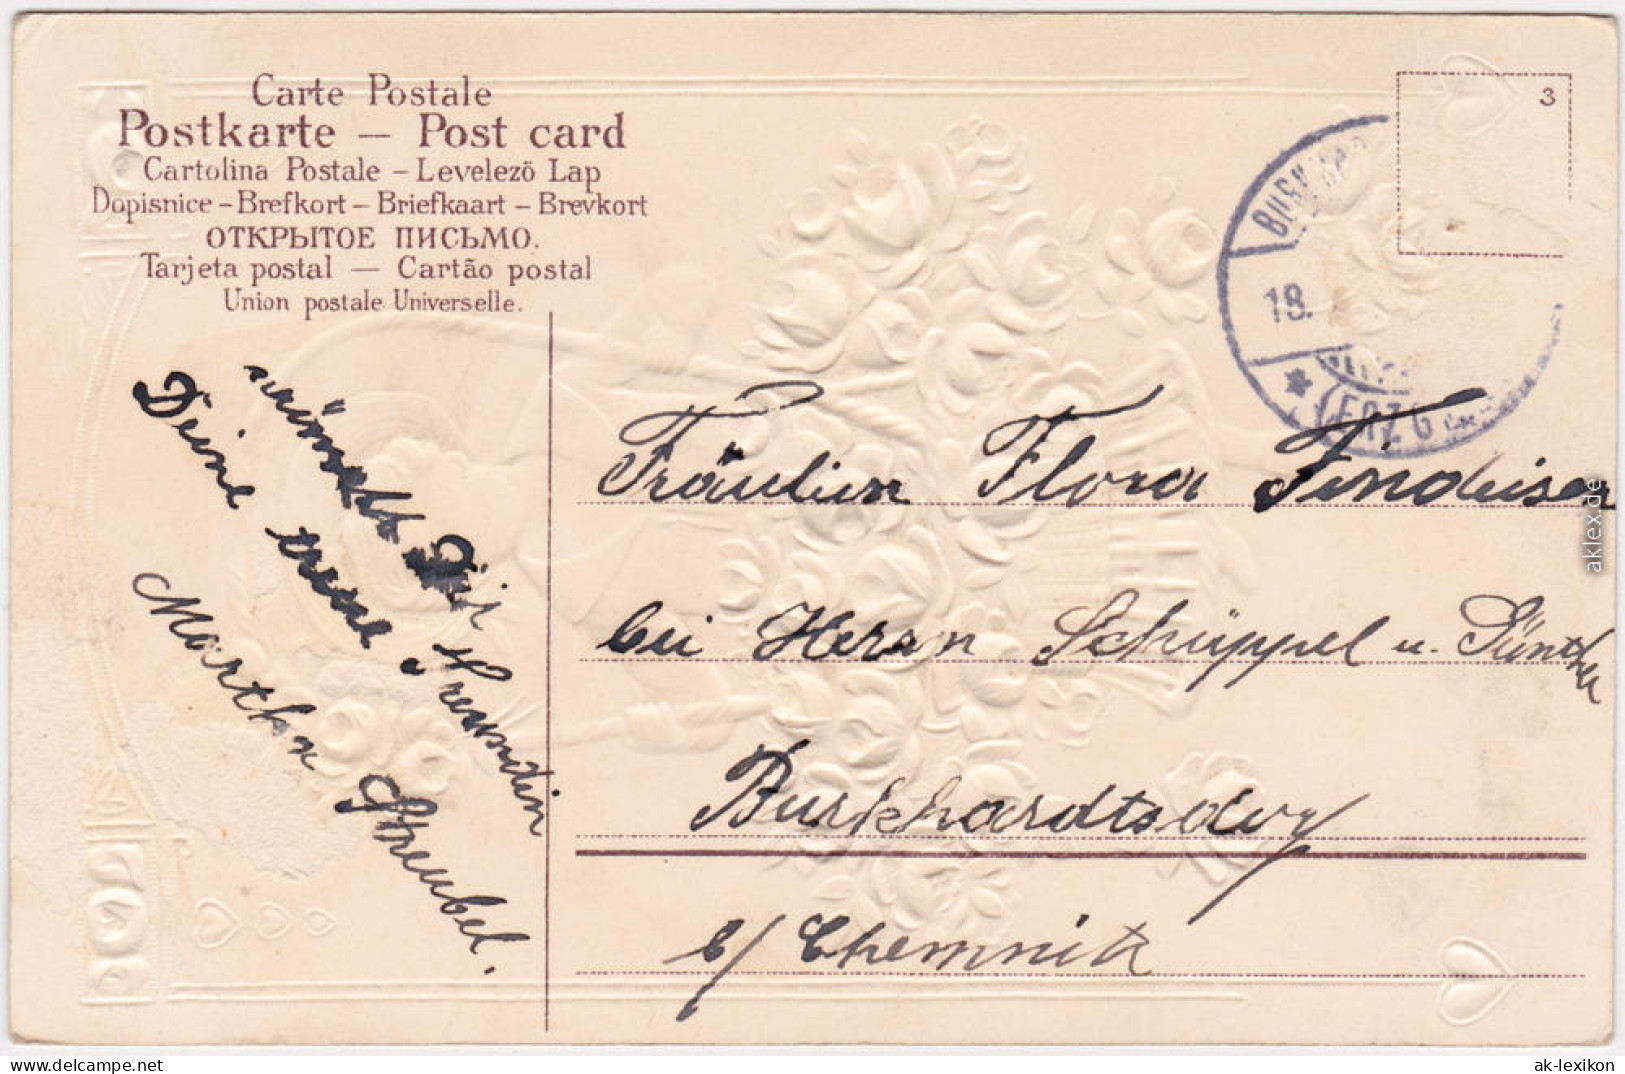 Carte Postale
Postkarte — Post card
Cartolina Postale – Levelezö Lap
Dopisnice – Brefkort – Briefkaart – Brevkort
ОТКРЫТОЕ ПИСЬМО.
Tarjeta postal — Cartão postal
Union postale Universelle.
3
18.
(ERZG
wünscht Dir
Deine treue Freundin
Martha
Fräulein Flora Findeisen
bei Herrn Schüppel u. Günther
Burkhardtsdorf
b/ Chemnitz
aklex.de
www.delcampe.net
ak-lexikon